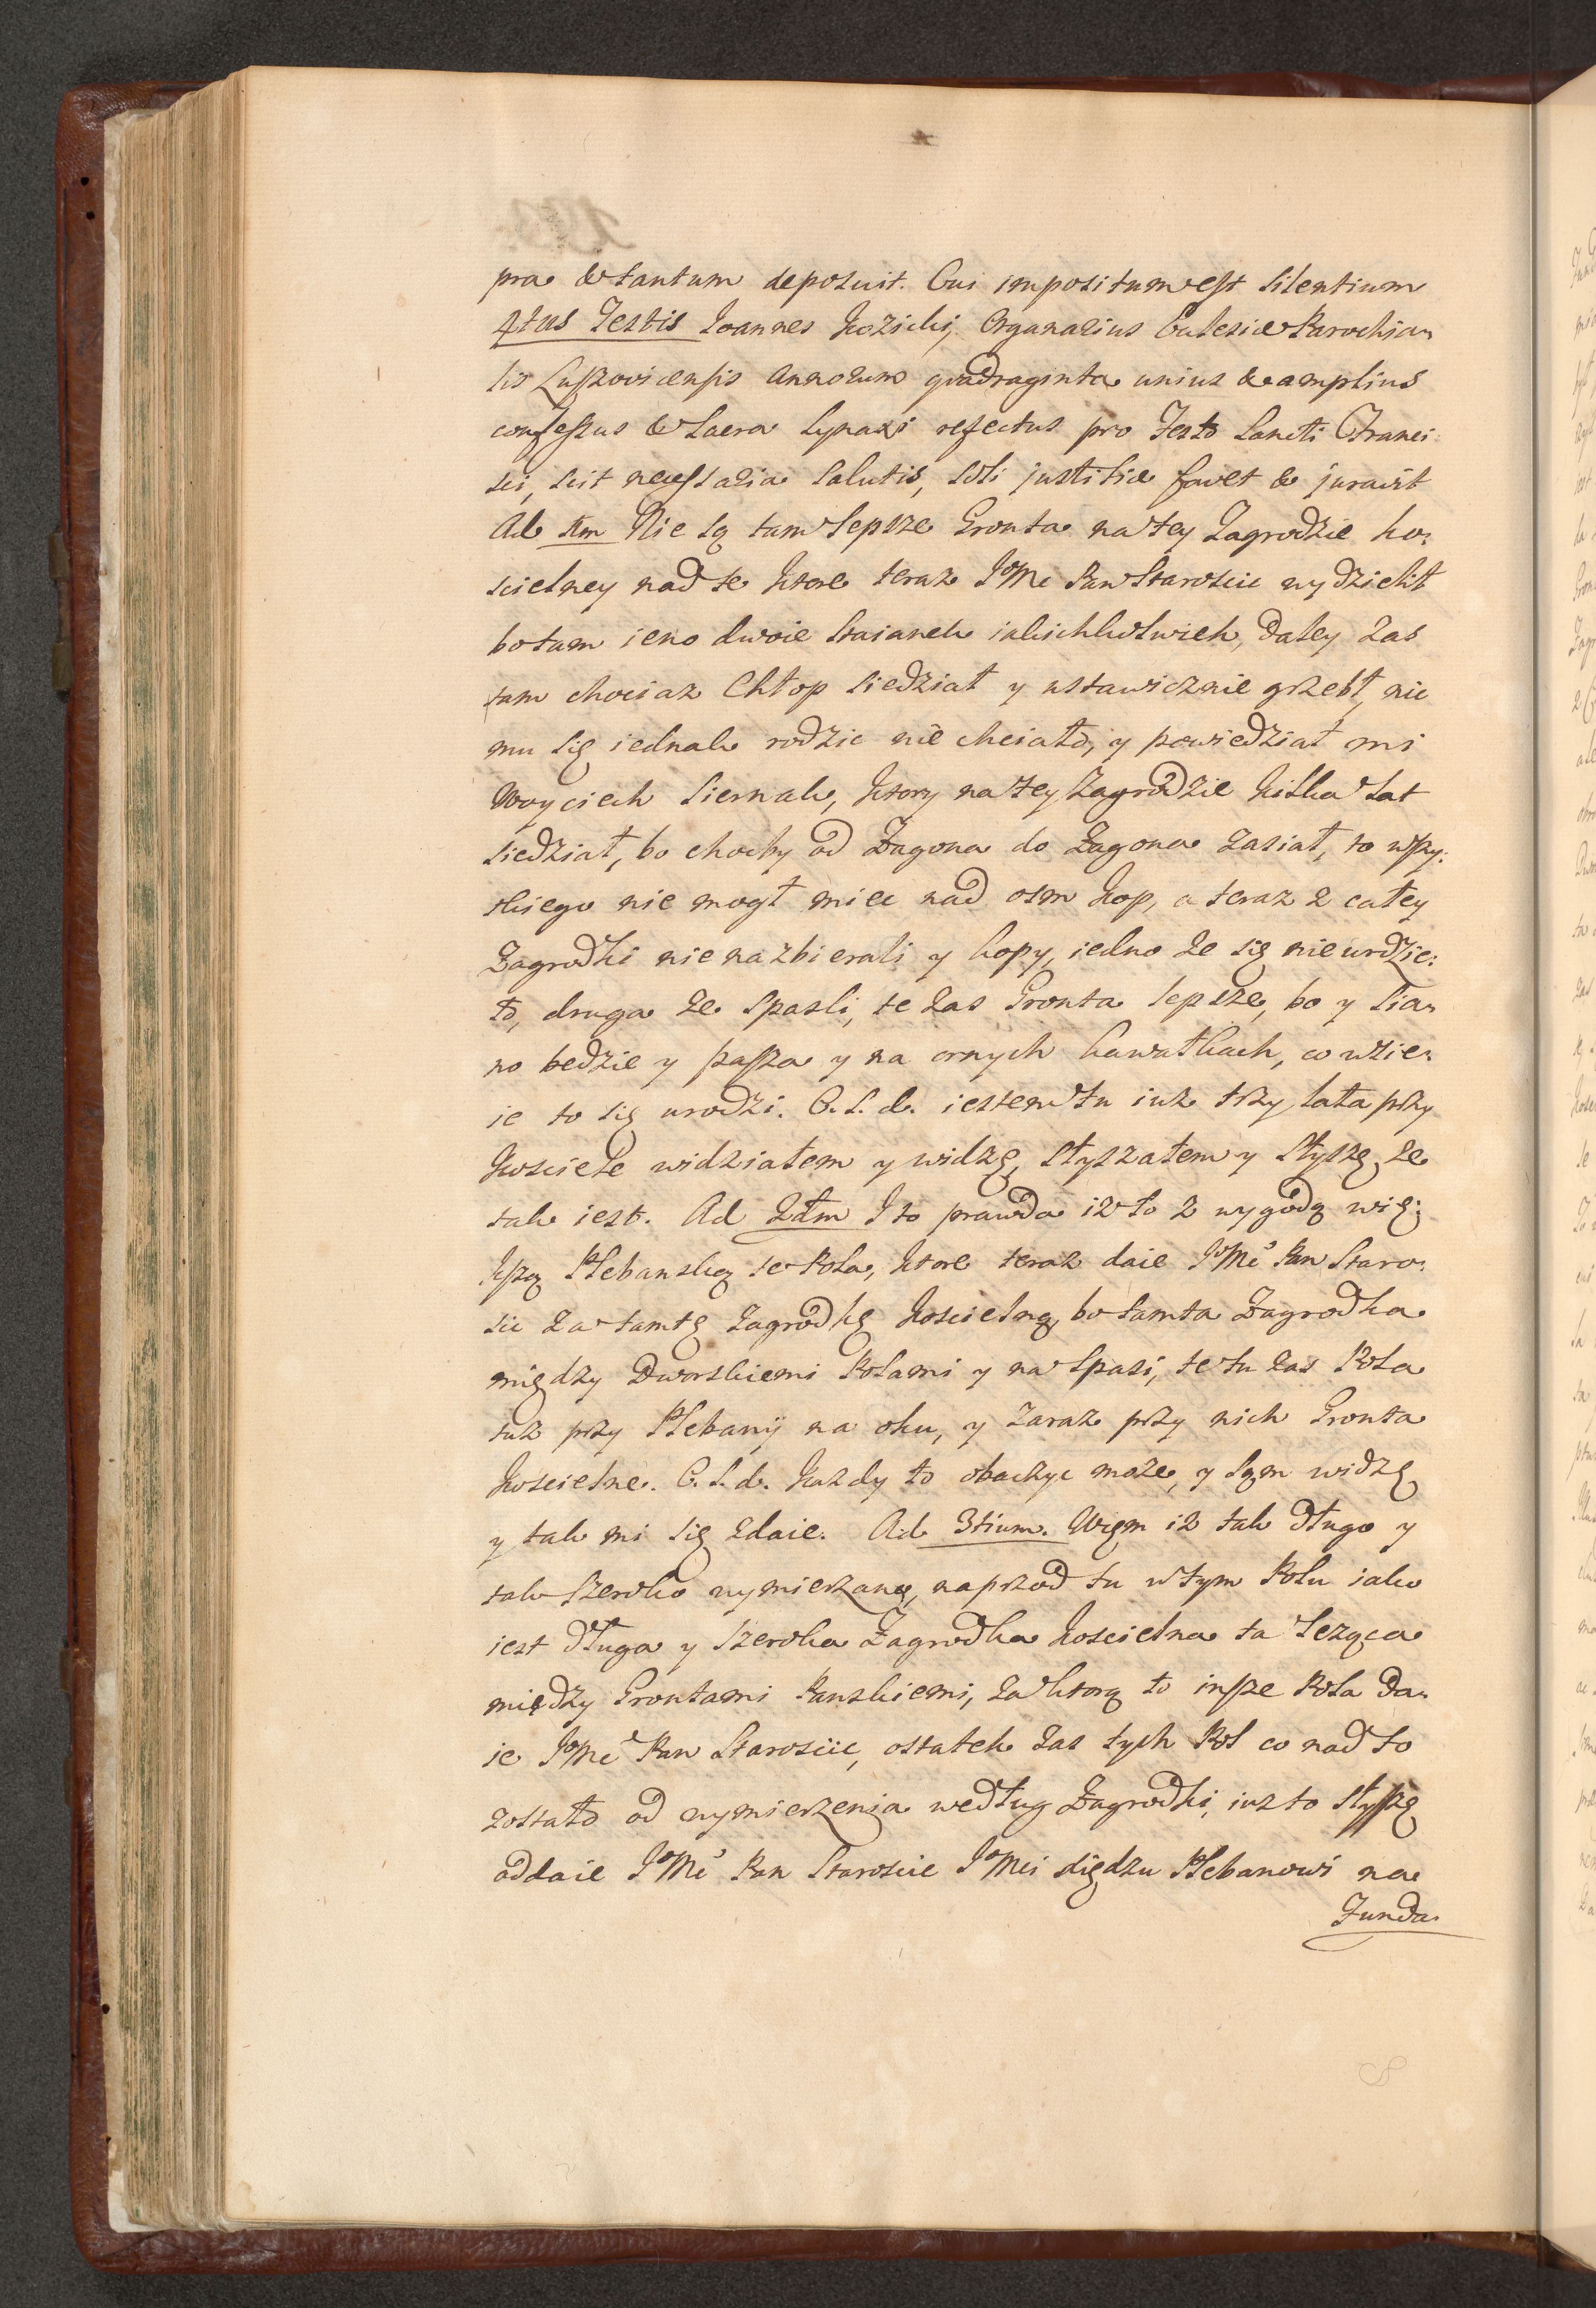 pra & tantum deposuit. Cui impositum est silentium
4tus Testis Joannes Kozicki, Organarius Ecclesiæ Parochia„
lis Luszovicensis annorum quadraginta unius & amplius
confessus & sacra Synaxi refectus pro Festo Sancti Franci:
sci, scit necessaria salutis, soli justitiæ favet & juravit
Ad 1um Nie są tam lepsze Gronta na tey Zagrodzie ko:
scielney nad te ktore teraz JoMc Pan Staroscic wydzielił
bo tam ieno dwoie staianek iakichkolwiek, daley zas
tam chociaz Chłop siedział y ustawicznie grzebł, nic
mu się iednak rodzic nie chciało, y powiedział mi
Woyciech Siernak, ktory na tey Zagrodzie kilka lat
siedział, bo choćby od Zagona do Zagona zasiał, to wszy:
stkiego nie mogł miec nad osm kop, a teraz z całey
Zagrodki nie nazbierali y kopy, iedno ze się nie urodzie:
ło, druga ze spasli, te zas Gronta lepsze, bo y sia„
no bedzie y pasza y na ornych kawałkach, co wsie„
je to się urodzi. C. S. d. iestem tu iuz trzy lata przy
kosciele widziałem y widzę, słyszałem y słyszę, ze
tak iest. Ad 2dum I to prawda iz to z wygodą wię:
kszą Plebanską te Rola, ktore teraz daie JoMc Pan Staro:
scic za tamtę zagrodkę koscielną, bo tamta Zagrodka
między Dworskiemi Rolami y na spasi, te tu zas Rola
tuz przy Plebanij na oku, y zaraz przy nich Gronta
koscielne. C. S. d. kazdy to obaczyc moze, y sąm widzę
y tak mi się zdaie. Ad 3tium. Wiem iz tak długo y
tak szeroko wymierzano, naprzod tu w tym Rolu iako
iest długa y szeroka Zagrodka koscielna ta leząca
między Grontami Panskiemi, za ktorą to insze Rola da„
ie JoMc Pan Staroscic, ostatek zas tych Rol co nad to
zostało od wymierzenia według Zagrodki, iuz to słyszę
oddaie JoMc Pan Staroscic JoMci xiędzu Plebanowi na
Funda„